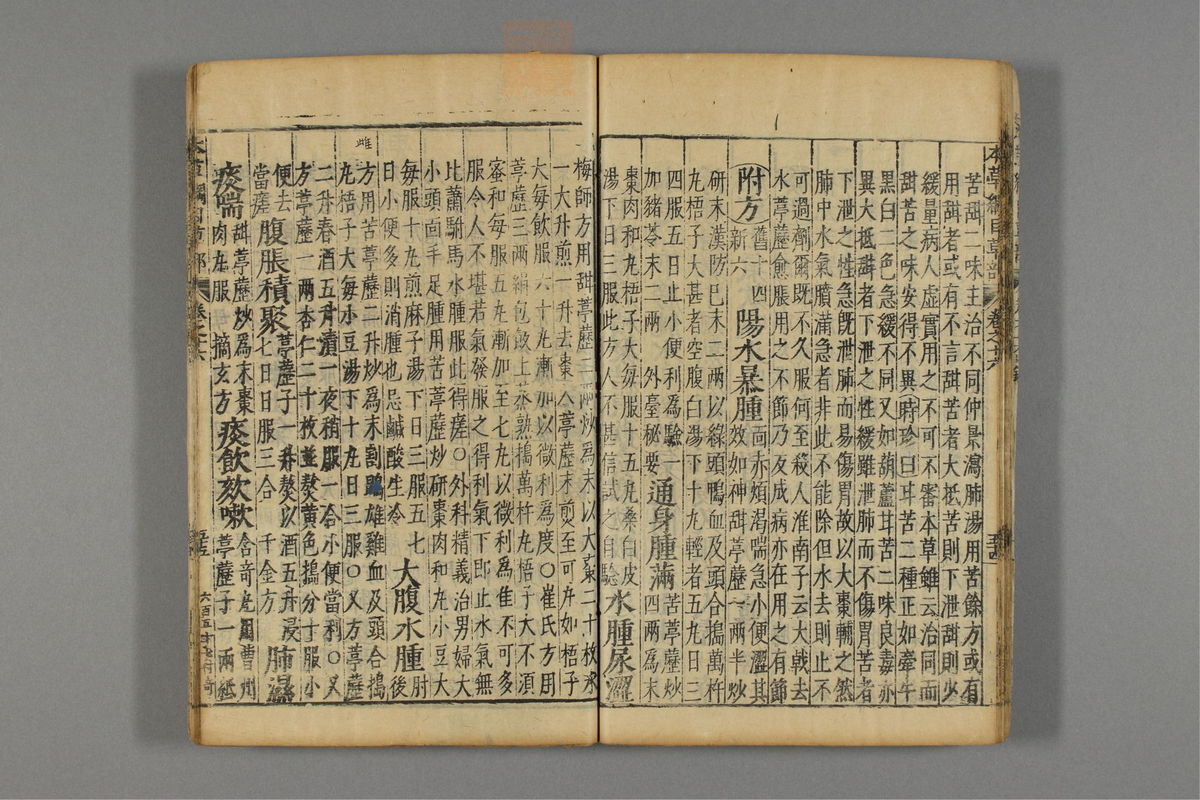 苦甜二味主治不同仲景瀉肺湯用苦餘方或有
用甜者或有不言甜苦者大抵苦則下泄甜則少
緩量病人虛實用之不可不審本草雖云治同而
甜苦之味安得不異時珍曰甘苦二種正如牽牛
黑白二色急緩不同又如葫蘆甘苦二味良毒亦
異大抵甜者下泄之性緩雖泄肺而不傷胃苦者
下泄之性急既泄肺而易傷胃故以大棗輔之然
肺中水氣膹滿急者非此不能除但水去則止不
可過劑爾既不久服何至殺人淮南子云大戟去
水葶藶愈脹用之不節乃反成病亦在用之有節
附方舊十四新六陽水暴腫面赤煩渴喘急小便澀其
效如神甜葶藶一兩半炒
研末漢防已末二兩以綠頭鴨血及頭合搗萬杵
九梧子大甚者空腹白湯下十九輕者五九日三
四服五日止小便利爲驗
加豬苓末二兩外臺秘要通身腫滿苦葶藶炒
四兩爲末
棗肉和丸梧子大每服十五丸桑白皮
湯下日三服此方人不甚信試之自驗水腫尿澀
梅師方用甜葶藶二兩炒爲末以大棗二十枚水
一大升煎一升去棗入葶藶末煎至可丸如梧子
大每飲服六十丸漸加以微利爲度○崔氏方用
葶藶三兩絹包飯上蒸熟搗萬杵丸梧子大不須
蜜和每服五丸漸加至七丸以微利爲佳不可多
服令人不堪若氣發服之得利氣下即止水氣無
比蕭駙馬水腫服此得瘥○外科精義治男婦大
小頭面手足腫用苦葶藶炒研棗肉和丸小豆大
每服十丸煎麻子湯下日三服五七
日小便多則消腫也忌鹹酸生冷大腹水腫肘後
方用苦葶藶二升炒爲末割鷄雄雞血及頭合搗
雌
丸梧子大每小豆湯下十丸日三服○又方葶藶
二升春酒五升漬一夜稍服一合小便當利○又
方葶藶一兩杏仁二十枚並熬黃色搗分十服小
便去
當瘥腹脹積聚葶藶子一升熬以酒五升浸
七日日服三合千金方肺濕
痰喘甜葶藶炒爲末棗
肉丸服摘玄方痰飲欬嗽含奇丸用曹州
葶藶子一兩紙